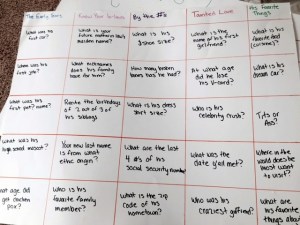 The Early Years
By the #s
Tainted Love
His Favorite
Things
What was his
first car?
What is your
future mother in law's
maiden name?
What is his
shoe size?
What is the
name of his first
girlfriend?
What is his
favorite food
(cuisine)?
What was his
first job?
What nicknames
does his family
have for him?
How many broken
bones has he had?
At what age
did he lose
his V-card?
What is his
dream car?
What was his
first pet? name?
Recite the birthdays
of 2 out of 3 of
his siblings
What is his dress
shirt size?
Who is his
celebrity crush?
Tits or
Ass?
What was his
high school mascot?
Your new last name
is from what
ethnic origin?
What are the last
4 #s of his
social security number
What was the
date y'all met?
Where in the
world does he
most want to
visit?
What age did
get chicken
pox?
Who is his
favorite family
member?
What is the zip
code of his
hometown?
Who was his
craziest girlfriend?
What are his
favorite
things about